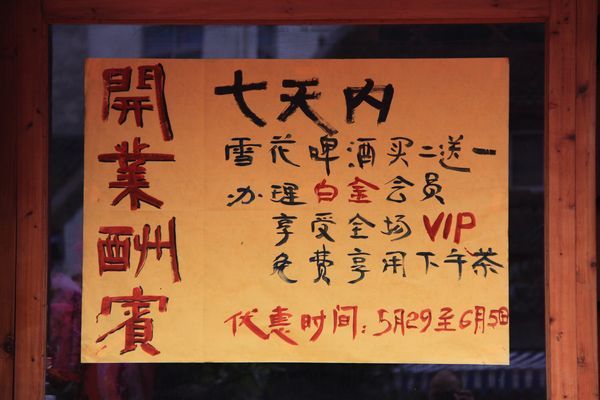 開業酬賓
七天内
雪花啤酒买二送一
办理白金会员
享受全场VIP
免费享用下午茶
优惠时间:5月29至6月5日